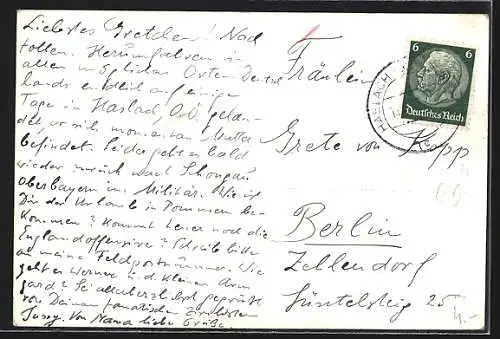 Liebstes Gretchen! Nach
tollen Herumfahren in
allen möglichen Orten Deutsch
lands endlich auf einige
Tage in Haslach, gelan
det, wo sich momentan Mutta
befindet. Leider geht es bald
wieder zurück nach Schongau
Oberbayern ins Militär. Wie ist
Dir der Urlaub in Pommern be-
kommen? Kommt heuer noch die
Englandoffensive? Schreib bitte
an meine Feldpostnummer. Wie
geht es Werner u. d. kleinen
gard? Sei allerherzlichst gegrüsst
von Deinem fanatischen
Von Mama liebe Grüße
Fräulein
Grete von Kopp
Berlin
Zehlendorf
25
6 6
Deutsches Reich
HASLACH
4.-